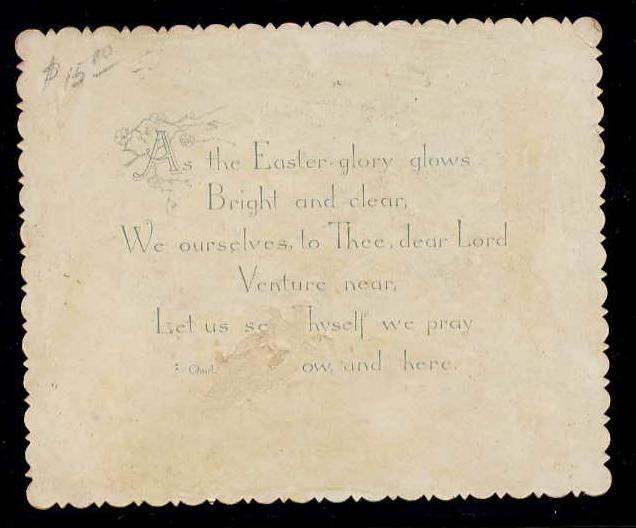 $15.00
As the Easter-glory glows
Bright and clear,
We ourselves, to Thee, dear Lord
Venture near,
Let us se Thyself we pray
ow, and here.